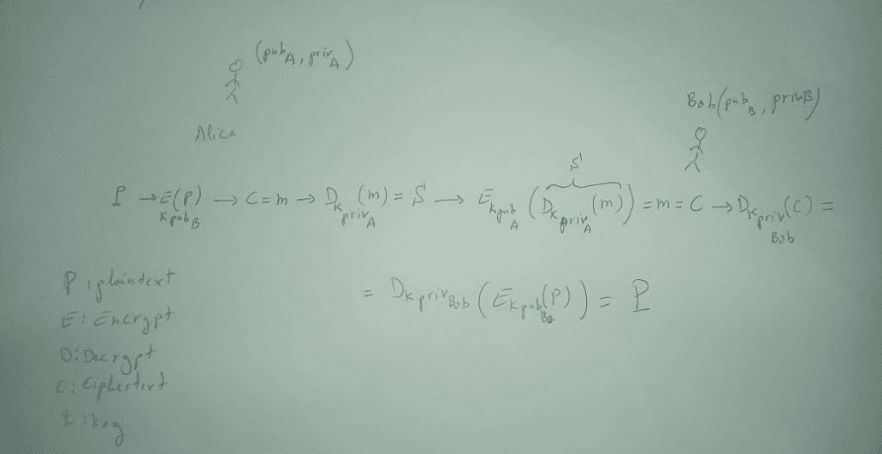 (pub_A, priv_A)
Bob(pub_B, privB)
Alice
S
P → E_Kpub_B(P) → C=m → D_Kpriv_A(m) = S → E_Kpub_A(D_Kpriv_A(m)) = m = C → D_Kpriv_Bob(C) =
= D_Kpriv_Bob(E_Kpub_B(P)) = P
P: plaintext
E: Encrypt
D: Decrypt
C: Ciphertext
k: key